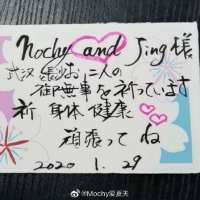 Mochy and Jing 様
武汉 長沙お二人の
御無事を祈っています
祈 身体健康
頑張ってね
2020 1.29
@Mochy爱夏天